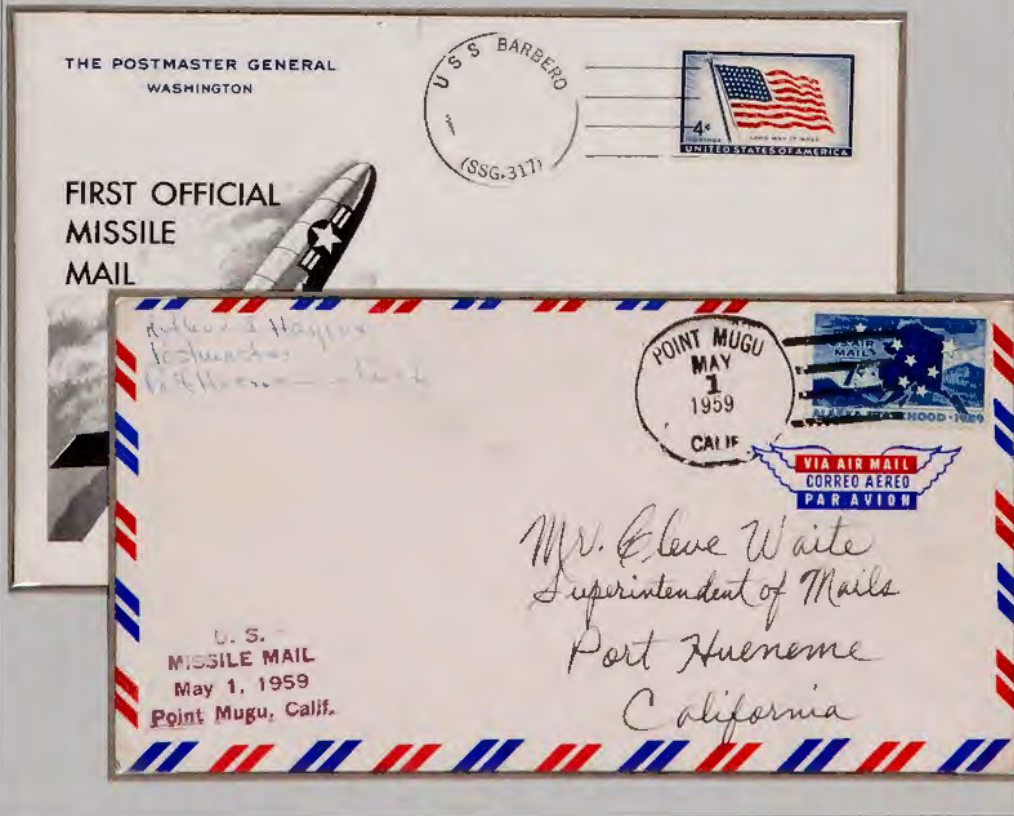 THE POSTMASTER GENERAL
WASHINGTON
USS BARBERO
(SSG-317)
4¢
POSTAGE
LONG MAY IT WAVE
UNITED STATES OF AMERICA
FIRST OFFICIAL
MISSILE
MAIL
Postmaster
POINT MUGU
MAY
1
1959
CALIF
US AIR
MAIL
7¢
ALASKA STATEHOOD·1959
VIA AIR MAIL
CORREO AEREO
PAR AVION
Mr. Cleve Waite
Superintendent of Mails
Port Hueneme
California
U. S.
MISSILE MAIL
May 1, 1959
Point Mugu, Calif.